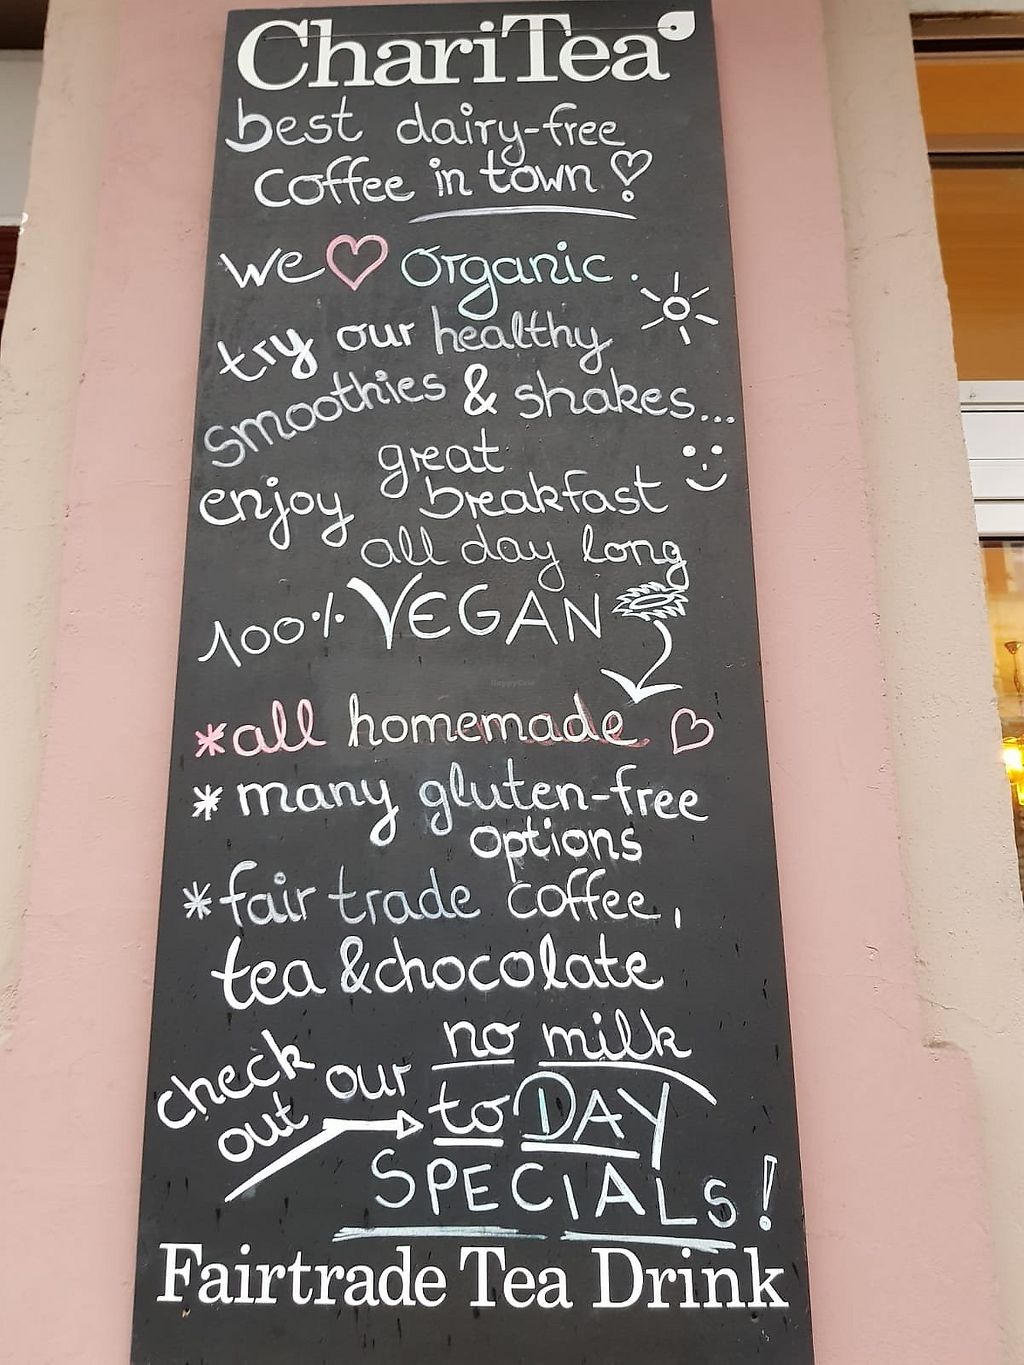 ChariTea
best dairy-free
coffee in town!
we ♡ organic.
try our healthy
smoothies & shakes...
great
enjoy breakfast
all day long
100% VEGAN
HappyCow
*all homemade ♡
*many gluten-free
options
*fair trade coffee,
tea & chocolate
check out our no milk
toDAY
SPECIALS!
Fairtrade Tea Drink